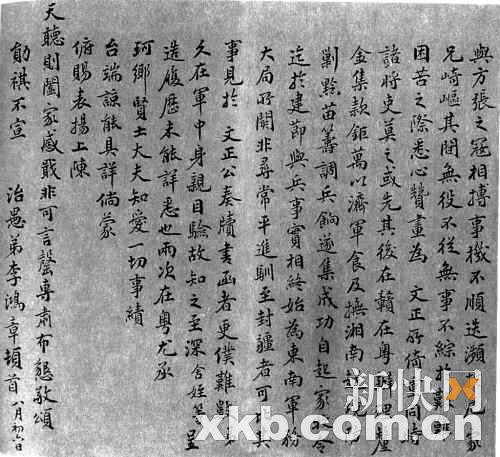 與方張之寇相搏事機不順迭瀕危家
兄崎嶇其間無役不從無事不綜於艱
困苦之際悉心贊畫為 文正所倚重同時
諸將吏莫之或先其後在贛在粵辦理釐
金集款鉅萬以濟軍食及撫湘南
剿黔苗籌調兵餉遂集成功自起家
迄於建節與兵事實相終始為東南軍務
大局所關非尋常平進馴至封疆者可其
事見於 文正公奏牘書函者更僕難數
久在軍中身親目驗故知之至深舍姪等呈
造履歷未能詳悉也兩次在粵尤承
珂鄉賢士大夫知愛一切事績
台端諒能具詳倘蒙
俯賜表揚上陳
天聽則闔家感戢非可言罄專肅布懇敬頌
勛祺不宣 治愚弟李鴻章頓首 八月初六日
新快网
xkb.com.cn